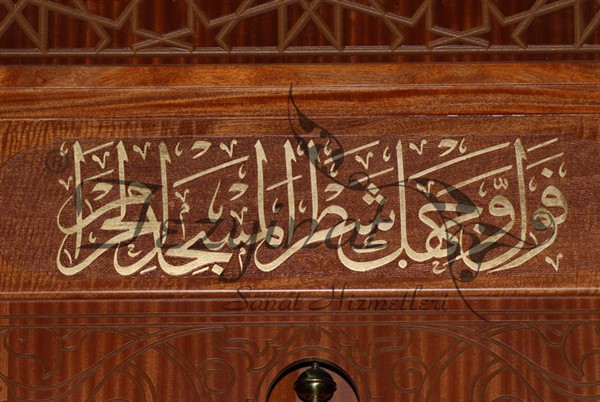 فول وجهك شطر المسجد الحرام
Tezyinat
Sanat Hizmetleri